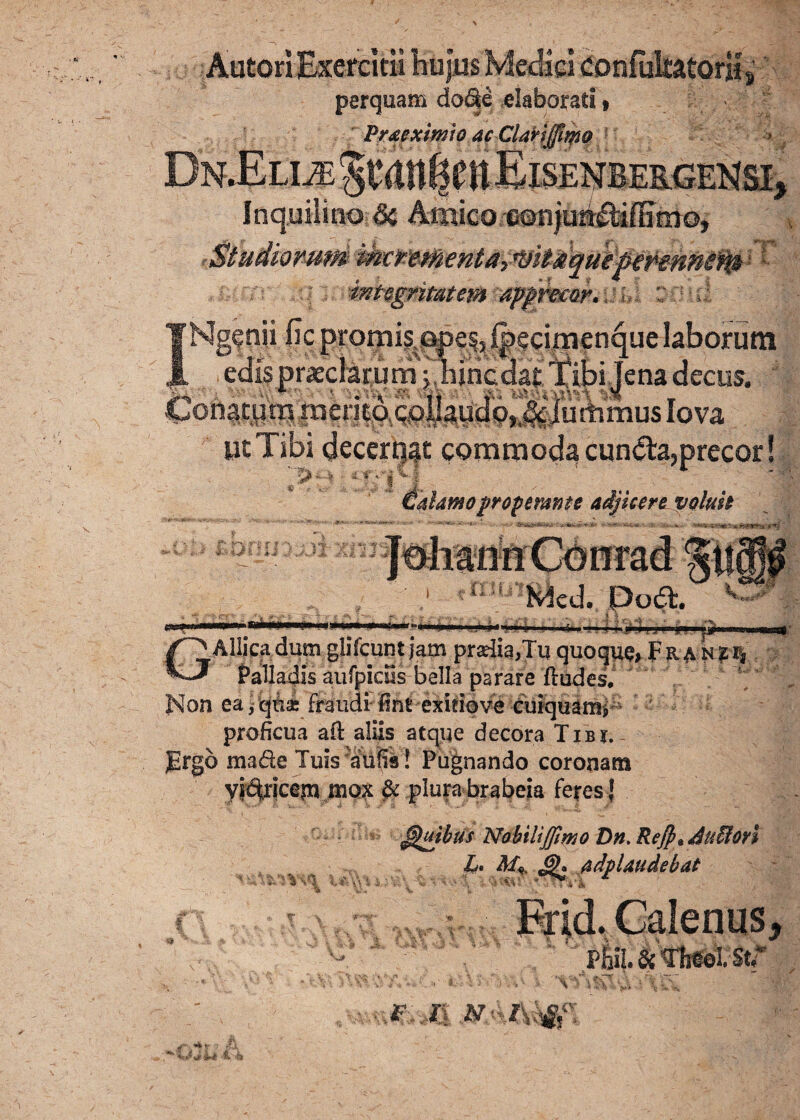 Autori Exercitii hujus Medici Consultatorii,
perquam docte elaborati,
Præeximio ac Clarissimo
DN. ELIÆ Frantzen EISENBERGENSI,
Inquilino & Amico conjunctissimo,
Studiorum incrementa, vitæque perennem
integritatem apprecor.
INgenii sic promis opes, specimenque laborum
edis præclarum; hinc dat Tibi Jena decus.
Conatum merito collaudo, & summus Iova
ut Tibi decernat commoda cuncta, precor!
Calamo properante adjicere voluit
Johann Conrad
Med. Doct.
GAllica dum gliscunt jam prælia, Tu quoque, FRANZI,
Palladis auspiciis bella parare studes.
Non ea, quæ fraudi sint exitiove cuiquam;
proficua ast aliis atque decora TIBI.
Ergò macte Tuis ausis! Pugnando coronam
victricem mox & plura brabeia feres!
Quibus Nobilissimo Dn. Resp. Auctori
L. M. Q. adplaudebat
Frid. Calenus,
Phil. & Theol. St.
F I N I S.